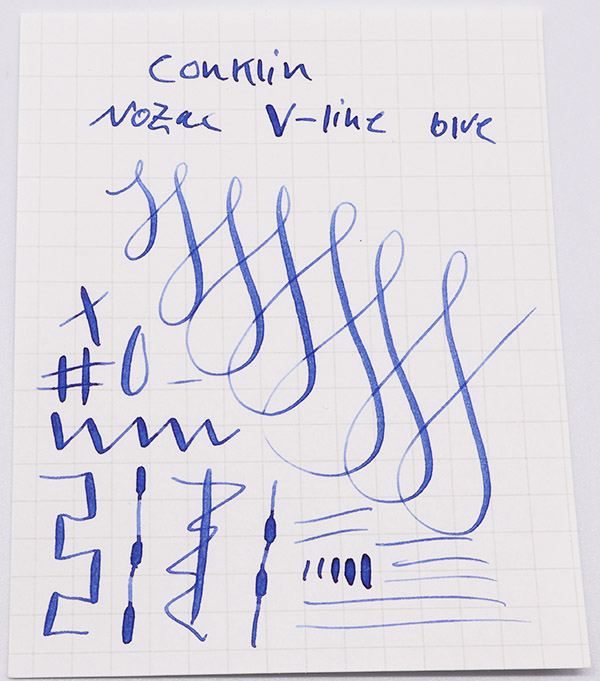 Conklin
Nozac V-line blue